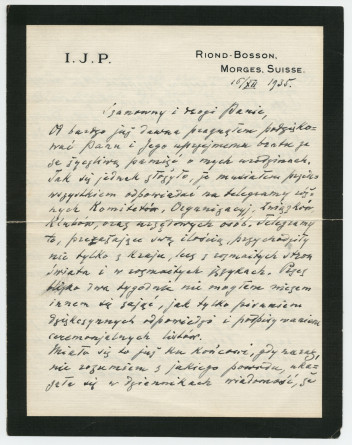 I. J. P.
Riond-Bosson,
Morges, Suisse.
16/XII 1935.
Szanowny i drogi Panie,
Od bardzo już dawna pragnąłem podzięko-
wać Panu i Jego uprzejmemu bratu za
ze życzliwą pamięć o mych urodzinach.
Tak się jednak złożyło, że musiałem przede
wszystkiem odpowiadać na telegramy róż-
nych Komitetów, Organizacyj, Związków
Klubów, oraz urzędowych osób. Telegramy
te, przerażające swą ilością, przychodziły
nie tylko z kraju, lecz z rozmaitych stron
świata i w rozmaitych językach. Przez
blisko dwa tygodnie nie mogłem niczem
innem się zająć, jak tylko pisaniem
dziękczynnych odpowiedzi i podpisywaniem
ceremonjalnych listów.
Miało się to już ku końcowi, gdy naraz,
nie rozumiem z jakiego powodu, uka-
zała się w dziennikach wiadomość, że